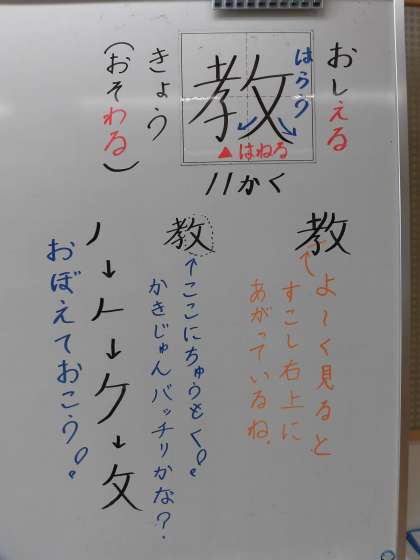 おしえる
教
はらう
▲はねる
きょう
（おそわる）
11かく
教
↑よーく見ると
すこし右上に
あがっているね。
教
↑ここにちゅうもく!。
かきじゅんバッチリかな？
ノ↓𠂉↓ケ↓攵
おぼえておこう!。